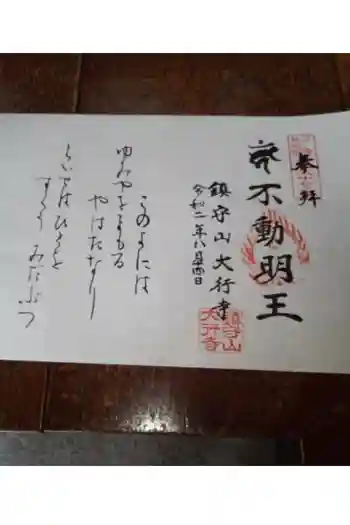 奉拝
不動明王
鎮守山大行寺
令和二年八月四日
鎮守山
大行寺
このよには
ゆみやをまもる
やはたなり
すくう みだぶつ